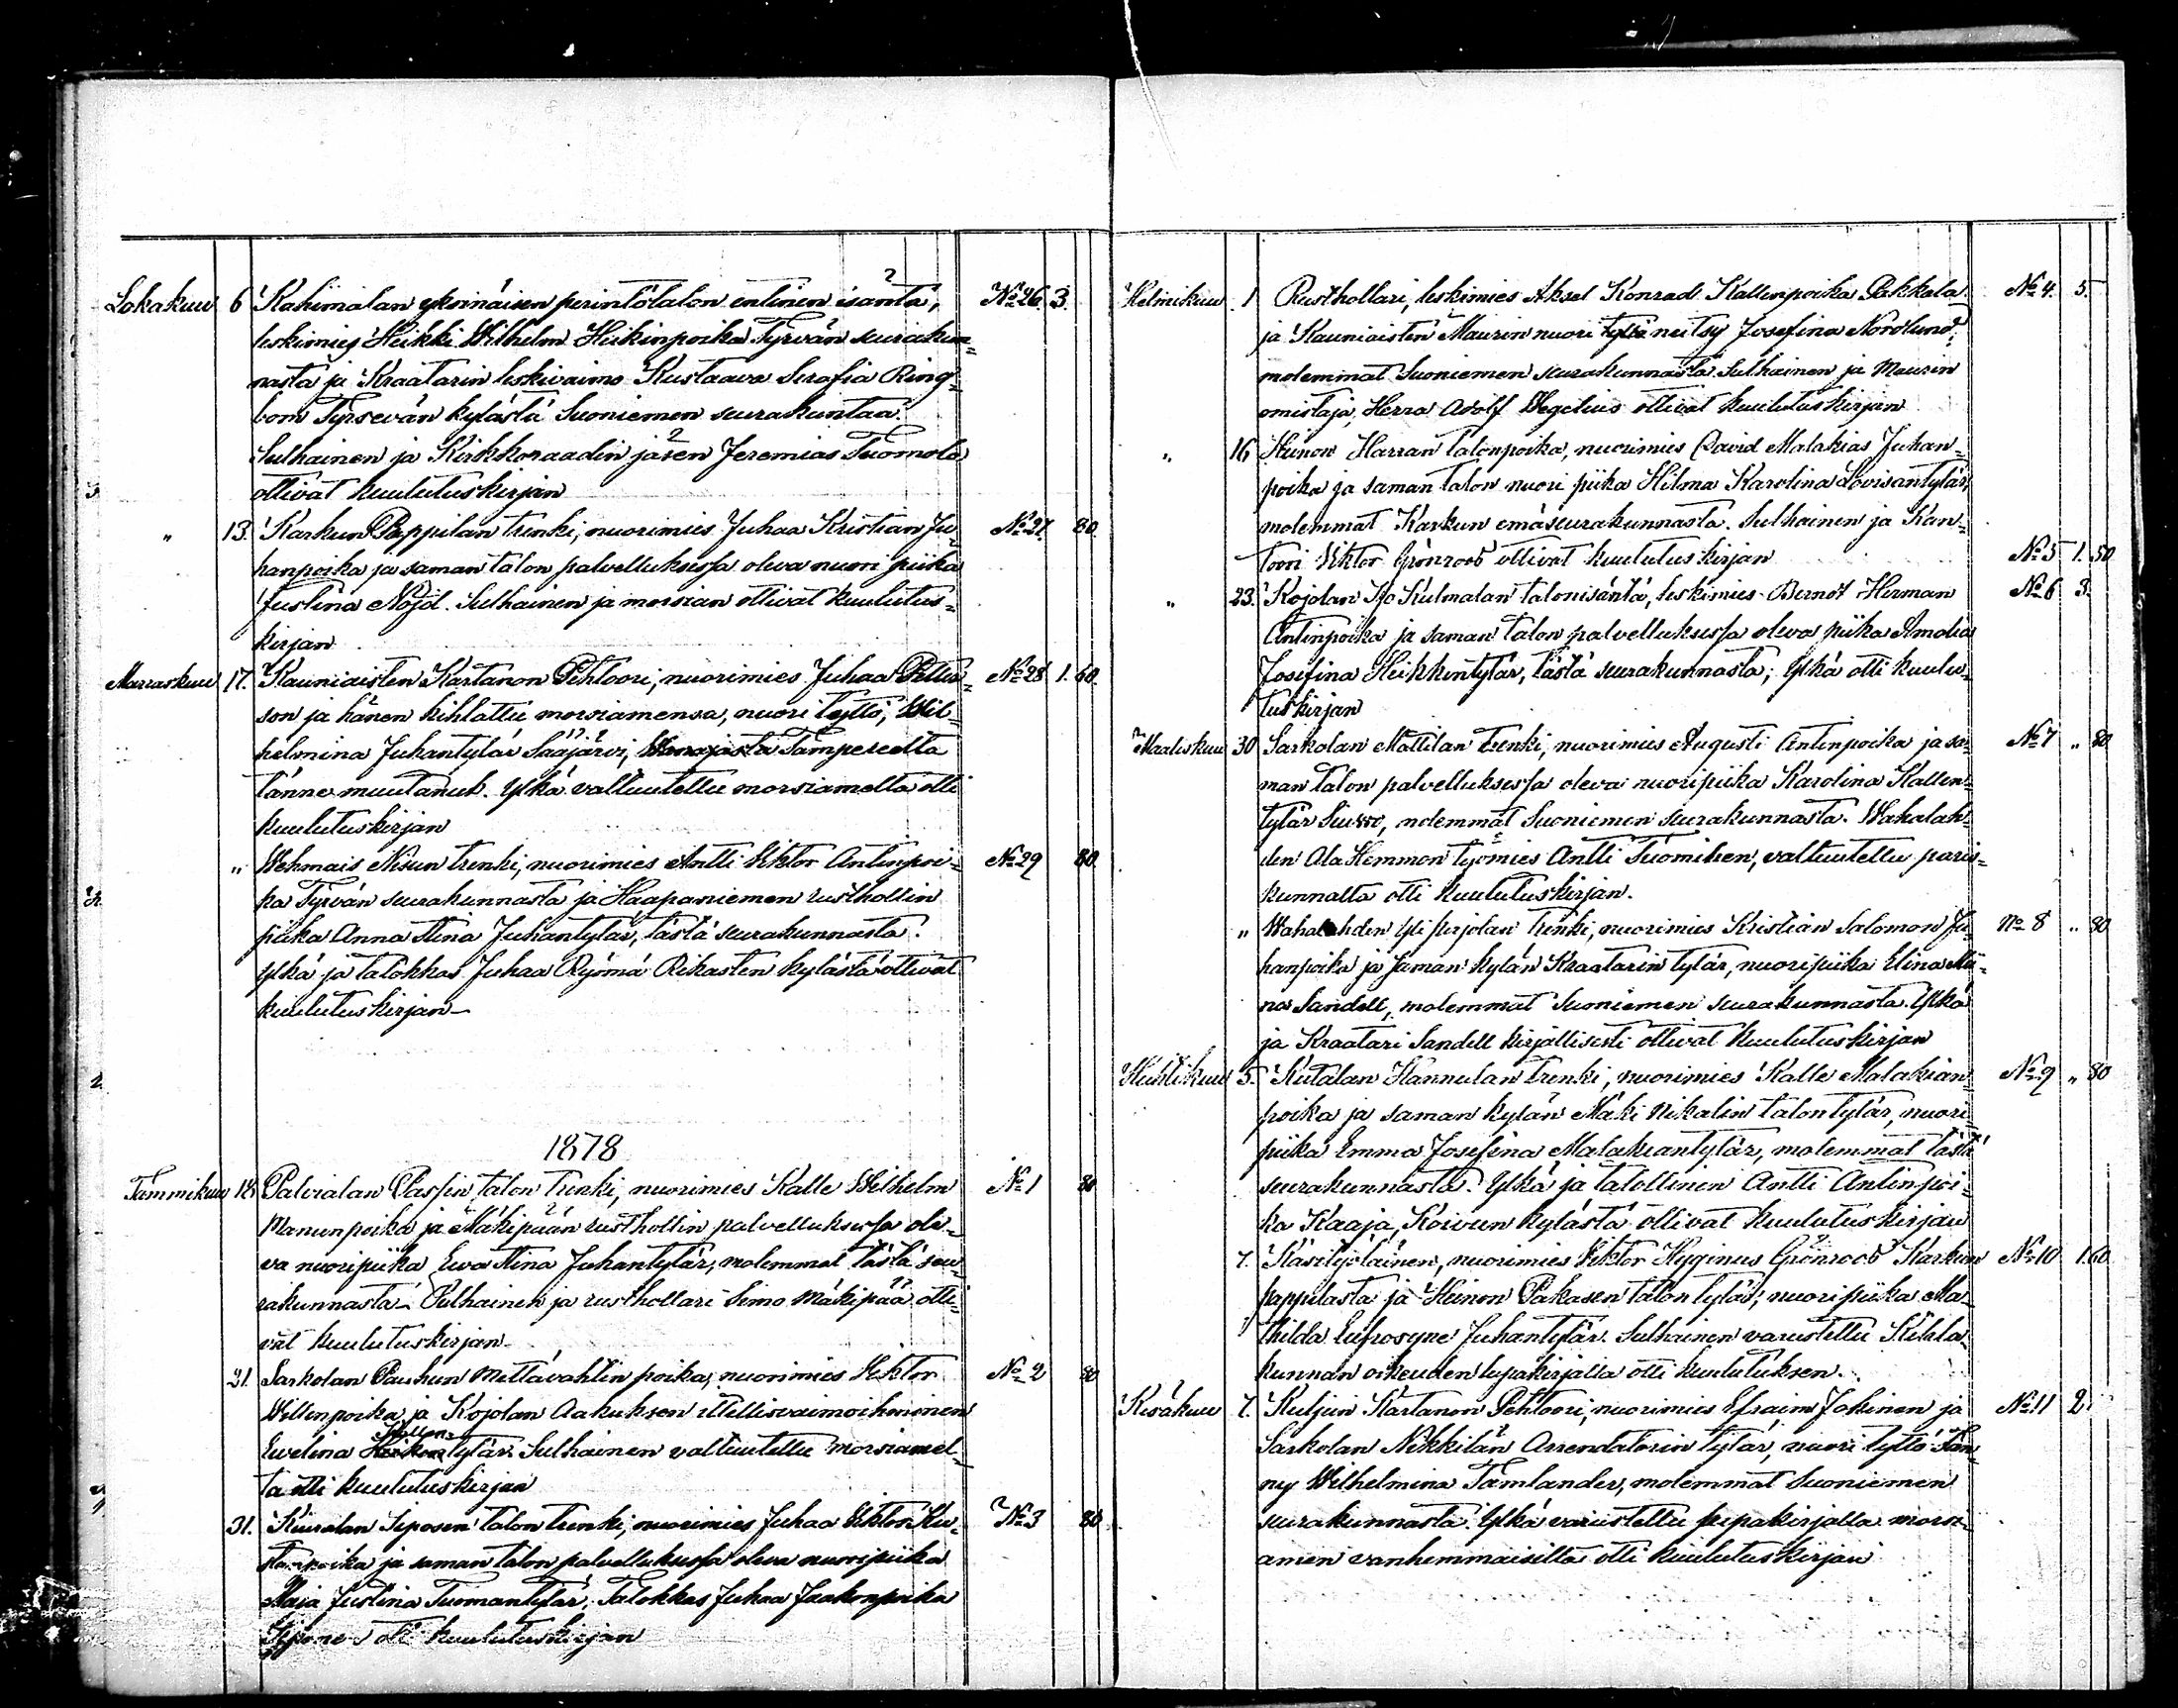 Lokakuu 6 Kahimalan ykoinäisen perintötalon entinen isäntä, No 26. 3.
leskimies Heikki Wilhelm Heikinpoika Tyrvän seurakun=
nasta ja Kraatarin leskivaimo Kustaava Serafia Ring=
bom Tyrsevän kylästä Suoniemen seurakuntaa.
Sulhainen ja Kirkkoraadin jäsen Jeremias Tuomola
ottivat kuulutuskirjan
" 13. Karkun Pappilan trenki, nuorimies Juhaa Kristian Ju= No 27. 80.
hanpoika ja saman talon palvelluksessa oleva nuori piika
Justina Nöjd. Sulhainen ja morsian ottivat kuulutus=
kirjan
Marraskuu 17. Kauniaisten Kartanon Pehtoori, nuorimies Juhaa Petter= No 28 1. 60.
son ja hänen kihlattu morsiamensa, nuori tyttö, Wil=
helmina Juhantytär Sääjärvi, Tampereelta
tänne muutanut. Ylkä valtuutettu morsiamelta otti
kuulutuskirjan
" Wehmais Nisun trenki, nuorimies Antti Viktor Antinpoi= No 29 80.
ka Tyrvän seurakunnasta ja Haapaniemen rusthollin
piika Anna Stina Juhantytär, tästä seurakunnasta.
Ylkä ja talokkas Juhaa Ryömä Rikasten kylästä ottivat
kuulutuskirjan
1878
Tammikuu 18. Palvialan Passin talon trenki, nuorimies Kalle Wilhelm No 1 80
Manunpoika ja Mäkipään rusthollin palvelluksessa ole=
va nuoripiika Ewa Stina Juhantytär, molemmat tästä seu=
rakunnasta. Sulhainen ja rusthollari Simo Mäkipää otti=
vat kuulutuskirjan
21. Sarkolan Pauhun Mettävahtin poika, nuorimies Viktor No 2 80
Willenpoika ja Kojolan Aakuksen itellisvaimoihminen
Ewelina Kallen tytär. Sulhainen valtuutettu morsiamel=
ta otti kuulutuskirjan
31. Kiuralan Siposen talon trenki, nuorimies Juhaa Viktor Ku= No 3 80
stanpoika ja saman talon palvelluksessa oleva nuoripiika
Maia Justina Tuomantytär. Talokkas Juhaa Jaakonpoika
otti kuulutuskirjan
Helmikuu 1 Rusthollari, leskimies Aksel Konrad Kallenpoika Pakkala No 4. 5.
ja Kauniaisten Maurin nuori neitsy Josefina Nordlund,
molemmat Suoniemen seurakunnasta. Sulhainen ja Maurin
omistaja, Herra Adolf Wegelius ottivat kuulutuskirjan
" 16 Heinon Harran talonpoika, nuorimies David Malakias Juhan=
poika ja saman talon nuori piika Hilma Karolina Lovisantytär,
molemmat Karkun emäseurakunnasta. Sulhainen ja Kan=
toori Viktor Grönroos ottivat kuulutuskirjan No 5 1. 50
" 23. Kojolan Iso Kulmalan talonisäntä, leskimies Bernot Herman No 6 3.
Antinpoika ja saman talon palvelluksessa oleva piika Amalia
Josefina Heikkintytär, tästä seurakunnasta; Ylkä otti kuulu=
tuskirjan
Maaliskuu 30 Sarkolan Mattilan trenki, nuorimies Augusti Antinpoika ja sa= No 7 " 80
man talon palvelluksessa oleva nuoripiika Karolina Kallen=
tytär, molemmat Suoniemen seurakunnasta. Wahalah=
den Ala Hemmon työmies Antti Tuominen, valtuutettu paris=
kunnalta otti kuulutuskirjan.
" Wahalahden Yli Pirjolan trenki, nuorimies Kristian Salomon Ju= No 8 " 80
hanpoika ja saman kylän Kraatarin tytär, nuoripiika Elina Mii=
na Sandell, molemmat Suoniemen seurakunnasta. Ylkä
ja Kraatari Sandell kirjallisesti ottivat kuulutuskirjan
Huhtikuu 5. Kutalan Hannulan trenki, nuorimies Kalle Malakian= No 9 " 80
poika ja saman kylän Mäki Nikalin talon tytär, nuori
piika Emma Josefina Malakiantytär, molemmat tästä
seurakunnasta. Ylkä ja talollinen Antti Antinpoi=
ka Kaaja, Koivun kylästä ottivat kuulutuskirjan
7. Käsityöläinen, nuorimies Viktor Hyginus Grönroos Karkun No 10 1.60
pappilasta ja Heinon Pakasen talon tytär, nuoripiika Ma=
thilda Eufrosyne Juhantytär. Sulhainen varustettu Kihla=
kunnan oikeuden lupakirjalla otti kuulutuksen.
Kesäkuu 7. Kuljun Kartanon Pehtoori, nuorimies Efraim Jokinen ja No 11 2.
Sarkolan Nikkilän Arrendatorin tytär, nuori tyttö Fan=
ny Wilhelmina Tamlander, molemmat Suoniemen
seurakunnasta. Ylkä varustettu lupakirjalla morsi=
amen vanhemmaisilta otti kuulutuskirjan